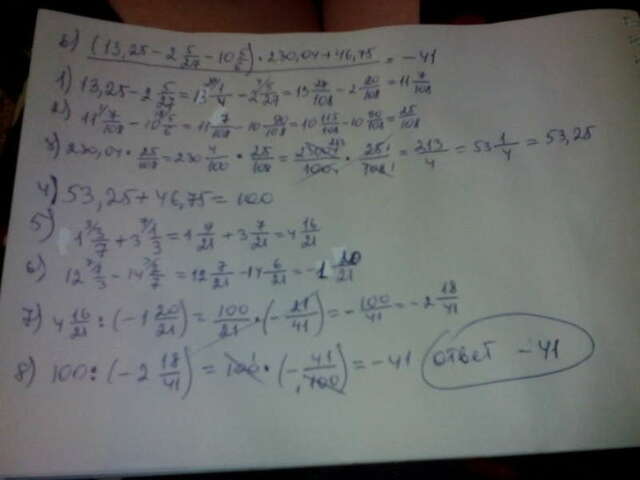 б) (13,25 - 2 5/27 - 10 5/6) · 230,04 + 46,75 = -41
1) 13,25 - 2 5/27 = 13 1/4 - 2 5/27 = 13 27/108 - 2 20/108 = 11 7/108
2) 11 7/108 - 10 5/6 = 11 7/108 - 10 90/108 = 10 115/108 - 10 90/108 = 25/108
3) 230,04 · 25/108 = 230 4/100 · 25/108 = 23004/100 · 25/108 = 213/4 = 53 1/4 = 53,25
4) 53,25 + 46,75 = 100
5) 1 3/7 + 3 1/3 = 1 9/21 + 3 7/21 = 4 16/21
6) 12 1/3 - 14 2/7 = 12 7/21 - 14 6/21 = -1 20/21
7) 4 16/21 : (-1 20/21) = 100/21 · (-21/41) = -100/41 = -2 18/41
8) 100 : (-2 18/41) = 100 · (-41/100) = -41 ответ -41